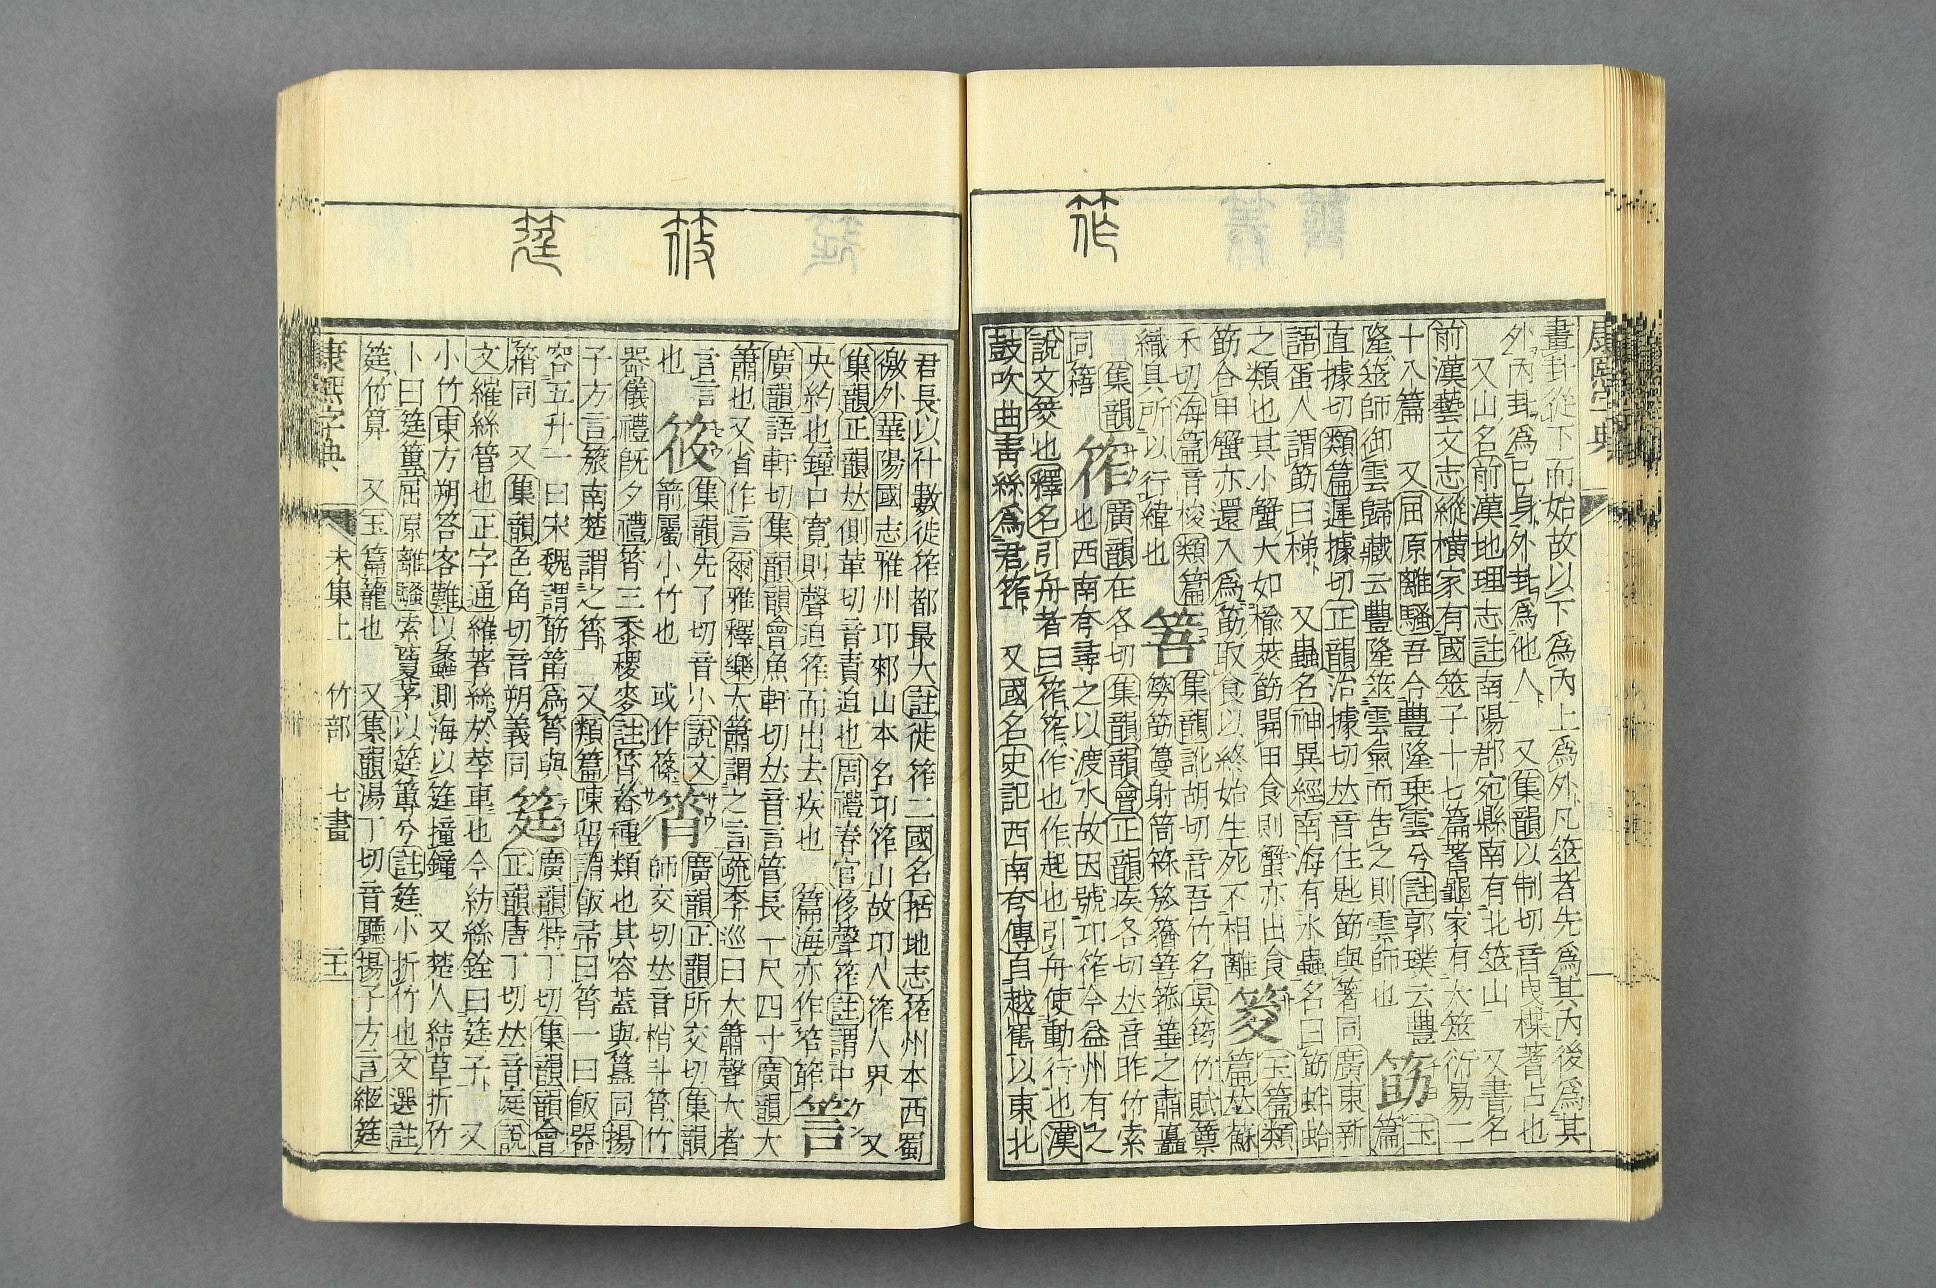 筰
康熙字典
畫卦從下而始故以下爲內上爲外凡筮者先爲其內後爲其
外內卦爲己身外卦爲他人 又集韻以制切音曳楪蓍占也
又山名前漢地理志註南陽郡宛縣南有北筮山 又書名
前漢藝文志縱橫家有國筮子十七篇蓍龜家有大筮衍易二
十八篇 又屈原離騷吾令豐隆乗雲兮註郭璞云豐 筯 玉篇
隆筮師御雲歸藏云豐隆筮雲氣而告之則雲師也
直據切類篇遲據切正韻治據切𠀤音住匙筯與箸同廣東新
語蛋人謂筯曰梯 又蟲名神異經南海有水蟲名曰筯蚌蛤
之類也其小蟹大如楡莢筯開甲食則蟹亦出食 筊 玉篇類
筯合甲蟹亦還入爲筯取食以終始生死不相離 篇𠀤蘇
禾切海篇音梭類篇 䇢 集韻訛胡切音吾竹名吳筠竹賦䉲
織具所以行緯也 簩筯簍射筒箖箊簩箐篠箠之肅矗
集韻 筰 廣韻在各切集韻韻會正韻疾各切𠀤音昨竹索
同簵 也西南夷尋之以渡水故因號邛筰今益州有之
說文筊也釋名引舟者曰筰筰作也作起也引舟使動行也漢
鼓吹曲靑絲爲君筰 又國名史記西南夷傳自越雟以東北
筱 筳
君長以什數徙筰都最大註徙筰二國名括地志筰州本西蜀
徼外華陽國志雅州邛郲山本名邛筰山故邛人筰人界 又
集韻正韻𠀤側革切音責迫也周禮春官侈聲筰註謂中
央約也鐘口寬則聲迫筰而出去疾也 篇海亦作笮筰 䇾
廣韻語軒切集韻韻會魚軒切𠀤音言管長一尺四寸廣韻大
簫也又省作言爾雅釋樂大簫謂之言疏李巡曰大簫聲大者
言言 筱 集韻先了切音小說文 筲 廣韻正韻所交切集韻
也 箭屬小竹也 或作篠 師交切𠀤音梢斗筲竹
器儀禮旣夕禮筲三黍稷麥註筲畚種類也其容蓋與簋同揚
子方言旅南楚謂之筲 又類篇陳留謂飯帚曰筲一曰飯器
容五升一曰宋魏謂筯筩爲筲與 筳 廣韻特丁切集韻韻會
䈾同 又集韻色角切音朔義同 正韻唐丁切𠀤音庭說
文繀絲筦也正字通繀著絲於䇠車也今紡絲銓曰筳子 又
小竹東方朔答客難以蠡測海以筳撞鐘 又楚人結草折竹
卜曰筳篿屈原離騷索藑茅以筳篿兮註筳小折竹也文選註
筳竹算 又玉篇籠也 又集韻湯丁切音廳揚子方言縆筳
康熙字典 未集上 竹部 七畫